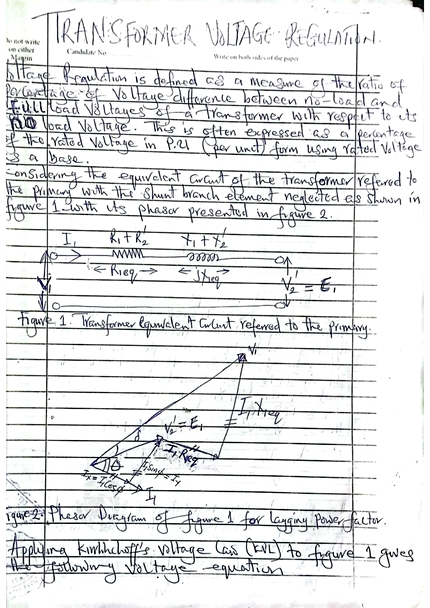 TRANSFORMER VOLTAGE REGULATION.
Do not write
on either
Margin
Candidate No
Write on both sides of the paper
Voltage Regulation is defined as a measure of the ratio of
Percentage of Voltage difference between no-load and
Full load Voltages of a transformer with respect to its
load Voltage. This is often expressed as a percentage
of the rated Voltage in P.U (per unit) form using rated Voltage
as a base.
Considering the equivalent Circuit of the transformer referred to
the primary with the shunt branch element neglected as shown in
figure 1 with its phasor presented in figure 2.
I1 R1 + R2' X1 + X2'
← R1eq → jX1eq
V1 V2' = E1
figure 1. Transformer Equivalent Circuit referred to the primary.
V1
I1 X1eq
V2' = E1
I1 Req
θ
I1
figure 2: Phasor Diagram of figure 1 for lagging power factor.
Applying Kirchhoff's voltage Law (KVL) to figure 1 gives
the following voltage equation